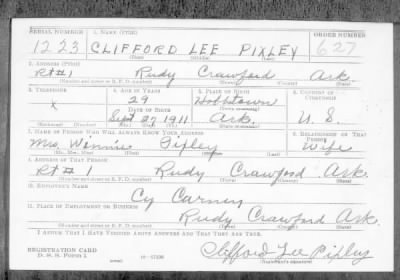 SERIAL NUMBER 1. NAME (Print) ORDER NUMBER
1223 CLIFFORD LEE PIXLEY 627
(First) (Middle) (Last)
2. ADDRESS (Print)
Rt#1 Rudy Crawford Ark.
(Number and street or R. F. D. number) (Town) (County) (State)
3. TELEPHONE 4. AGE IN YEARS 5. PLACE OF BIRTH 6. COUNTRY OF CITIZENSHIP
X 29 Hobbtown
DATE OF BIRTH (Town or county)
Sept 27 1911 Ark. U. S.
(Exchange) (Number) (Mo.) (Day) (Yr.) (State or country)
7. NAME OF PERSON WHO WILL ALWAYS KNOW YOUR ADDRESS 8. RELATIONSHIP OF THAT PERSON
Mrs. Winnie Pixley Wife
(Mr., Mrs., Miss) (First) (Middle) (Last)
9. ADDRESS OF THAT PERSON
Rt # 1 Rudy Crawford Ark.
(Number and street or R. F. D. number) (Town) (County) (State)
10. EMPLOYER'S NAME
Cy Carney
11. PLACE OF EMPLOYMENT OR BUSINESS
Rudy Crawford Ark.
(Number and street or R. F. D. number) (Town) (County) (State)
I AFFIRM THAT I HAVE VERIFIED ABOVE ANSWERS AND THAT THEY ARE TRUE.
REGISTRATION CARD
D. S. S. Form 1 Clifford Lee Pixley
(Registrant's signature)